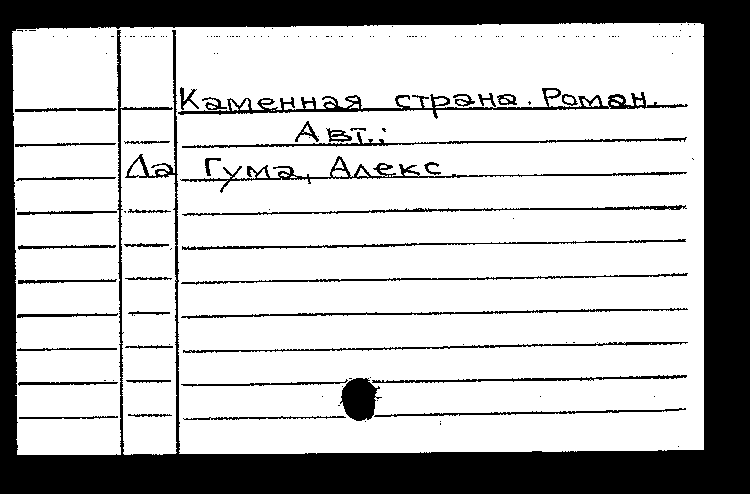 Каменная страна. Роман.
Авт.:
Ла Гума, Алекс.